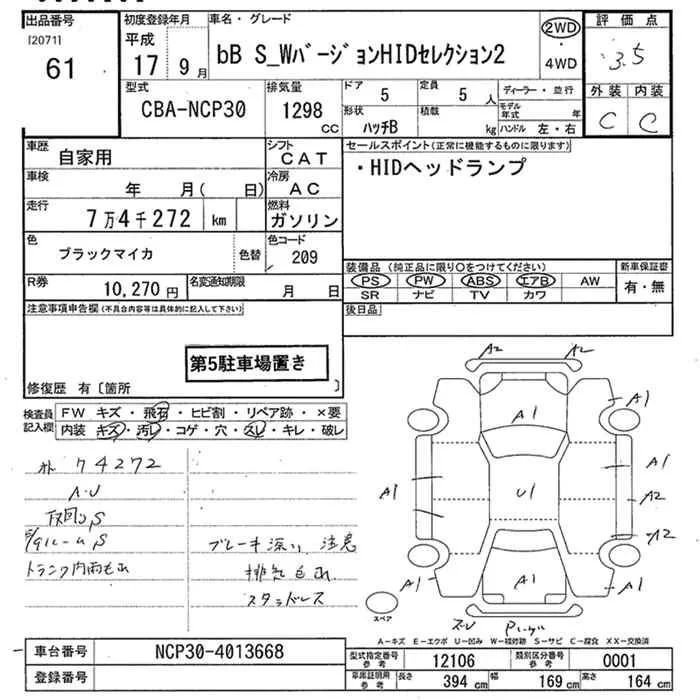 出品番号
[2071]
61
初度登録年月
平成
17 9月
車名・グレード
bB S_WバージョンHIDセレクション2
2WD
・
4WD
評価点
3.5
外装 内装
C C
型式
CBA-NCP30
排気量
1298
CC
ドア
5
定員
5 人
形状
ハッチB
積載
kg
ディーラー・並行
モデル年式 年
ハンドル 左・右
車歴
自家用
シフト
CAT
車検
年 月( 日)
冷房
AC
走行
7万4千272 km
燃料
ガソリン
色
ブラックマイカ
色替
色コード
209
R券
10,270 円
名変通知期限
月 日
セールスポイント(正常に機能するものに限ります)
・HIDヘッドランプ
装備品(純正品に限り○をつけてください)
PS PW ABS エアB AW
SR ナビ TV カワ
新車保証書
有・無
後日品
注意事項申告欄(不具合内容等は具体的に記入して下さい)
第5駐車場置き
修復歴 有〔箇所 〕
検査員記入欄
FW キズ・飛石・ヒビ割・リペア跡・×要
内装 キズ・汚レ・コゲ・穴・スレ・キレ・破レ
74272
A・U
S
S
トランク内雨もれ
ブレーキ深い 注意
排気もれ
スタッドレス
A2 A2
A1 A1
A1
A1 U1 A1
A2
A2
A1 A1 A1
スペア
A-キズ E-エクボ U-凹み W-補修跡 S-サビ C-腐食 XX-交換済
車台番号
NCP30-4013668
登録番号
型式指定番号
参考
12106
類別区分番号
参考
0001
車庫証明用
参考
長さ
394 cm
幅
169 cm
高さ
164 cm